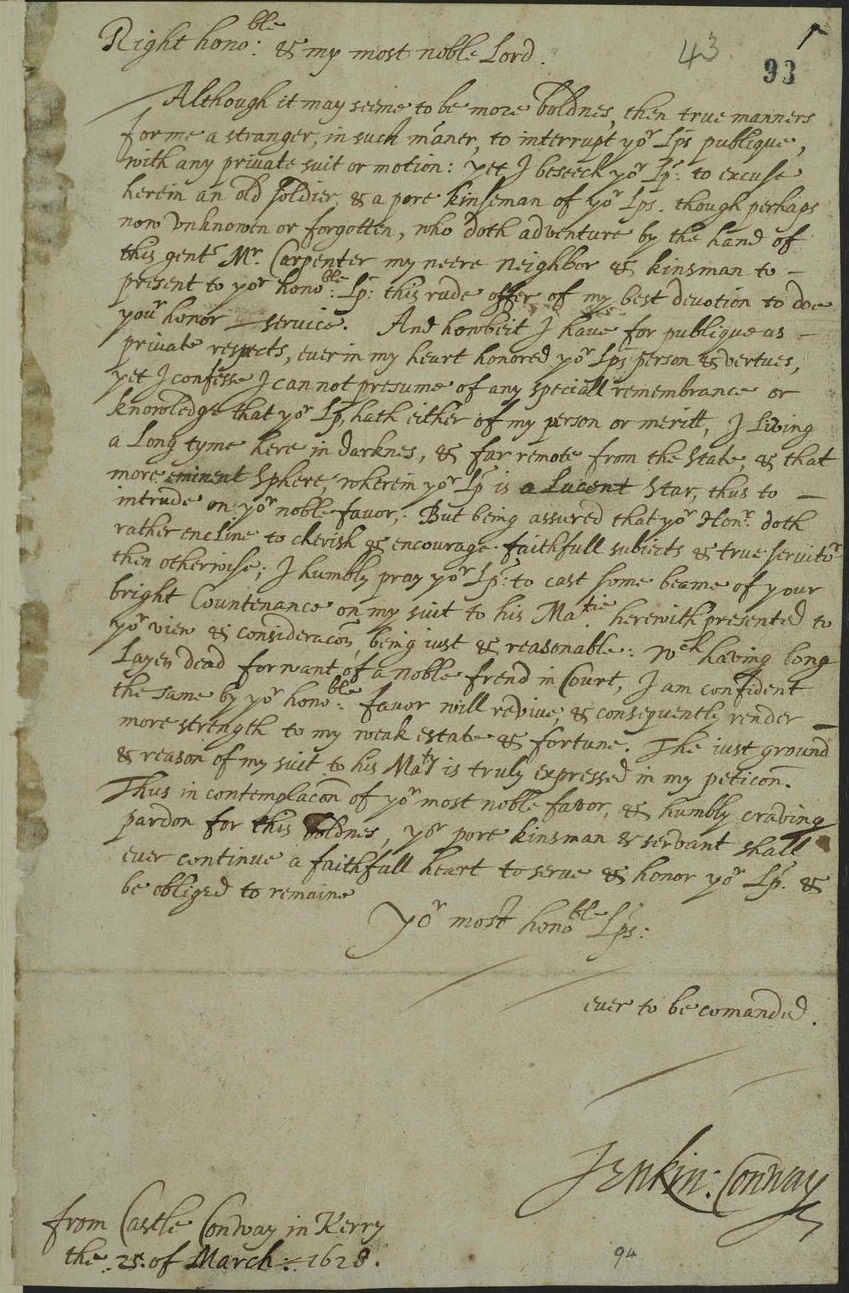 Right hono:ble & my most noble Lord.
43
93
Although it may seeme to be more boldnes, then true manners
for me a stranger, in such maner, to interrupt yor Lps publique,
with any private suit or motion: yet I beseech yor Lp: to excuse
herein an old soldier, & a pore kinseman of yor Lps. though perhaps
now vnknowen or forgotten, who doth adventure by the hand of
this gentl Mr. Carpenter my neere neighbor & kinsman to -
present to yor honoble: Lp: this rude offer of my best devotion to doe
your honor service. And howbeit I have for publique as -
private respects, ever in my heart honored yor Lps person & vertues,
yet I confesse I can not presume of any speciall remembrance or
knowledge that yor Lp, hath either of my person or meritt, I living
a long tyme here in darknes, & far remote from the state, & that
more eminent Sphere, wherein yor Lp is a Lucent Star, thus to -
intrude on yor noble favor,: But being assured that yor Honr. doth
rather encline to cherish & encourage faithfull subiects & true servitors
then otherwise; I humbly pray yor Lp: to cast some beame of your
bright Countenance on my suit to his Matie herewith presented to
yor view & consideracon, being iust & reasonable: Wch having long
Layen dead for want of a noble frend in Court, I am confident
the same by yor honoble: favor will revive, & consequently render -
more strength to my weak estate & fortune. The iust ground
& reason of my suit to his Maty is truly expressed in my peticon.
Thus in contemplacon of yor most noble favor, & humbly craving
pardon for this boldnes, yor pore kinsman & servant shall
ever continue a faithfull heart to serve & honor yor Lp. &
be obliged to remaine
Yor most honoble Lps:
ever to be comanded.
Jenkin: Conway
from Castle Conway in Kerry
the .25. of March: 1628.
94